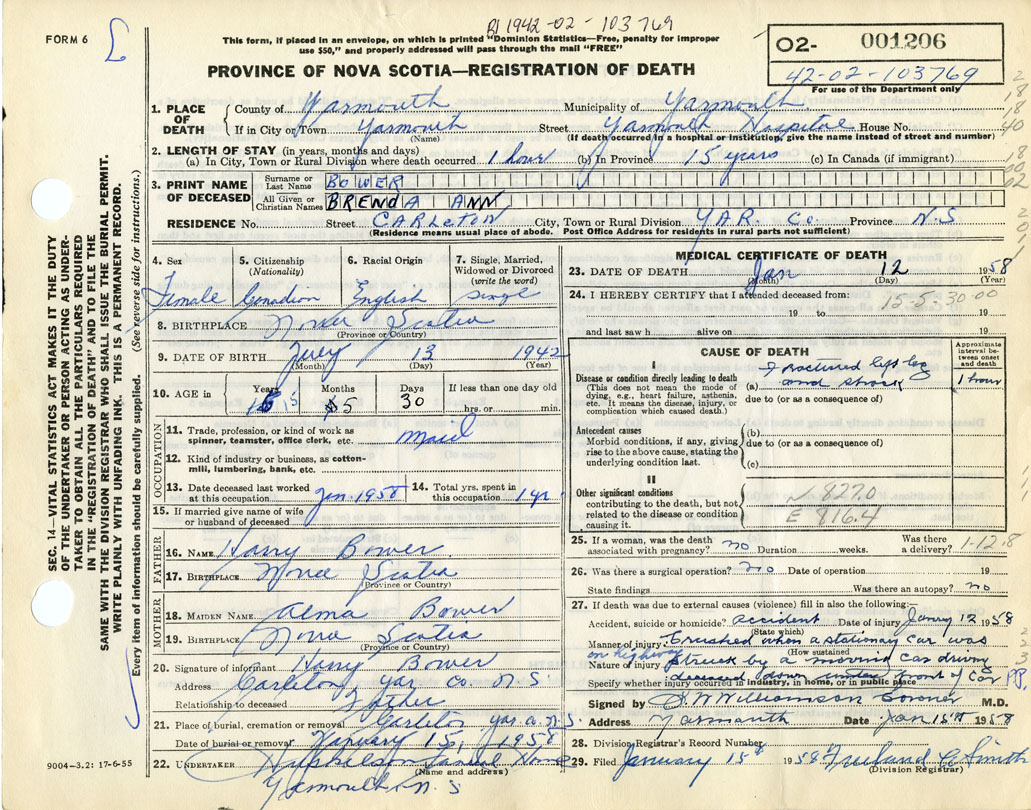 FORM 6
B1 1942-02-103769
This form, if placed in an envelope, on which is printed "Dominion Statistics—Free, penalty for improper
use $50," and properly addressed will pass through the mail "FREE"
02- 001206
42-02-103769
For use of the Department only
PROVINCE OF NOVA SCOTIA—REGISTRATION OF DEATH
SEC. 14—VITAL STATISTICS ACT MAKES IT THE DUTY
OF THE UNDERTAKER OR PERSON ACTING AS UNDER-
TAKER TO OBTAIN ALL THE PARTICULARS REQUIRED
IN THE "REGISTRATION OF DEATH" AND TO FILE THE
SAME WITH THE DIVISION REGISTRAR WHO SHALL ISSUE THE BURIAL PERMIT.
WRITE PLAINLY WITH UNFADING INK. THIS IS A PERMANENT RECORD.
Every item of information should be carefully supplied. (See reverse side for instructions.)
1. PLACE OF DEATH County of Yarmouth Municipality of Yarmouth
If in City or Town Yarmouth Street Yarmouth Hospital House No.
(Name) (If death occurred in a hospital or institution, give the name instead of street and number)
2. LENGTH OF STAY (in years, months and days)
(a) In City, Town or Rural Division where death occurred 1 hour (b) In Province 15 years (c) In Canada (if immigrant)
3. PRINT NAME OF DECEASED Surname or Last Name BOWER
All Given or Christian Names BRENDA ANN
RESIDENCE No. Street CARLETON City, Town or Rural Division YAR. Co. Province N.S
(Residence means usual place of abode. Post Office Address for residents in rural parts not sufficient)
4. Sex 5. Citizenship (Nationality) 6. Racial Origin 7. Single, Married, Widowed or Divorced (write the word)
Female Canadian English Single
8. BIRTHPLACE Nova Scotia
(Province or Country)
9. DATE OF BIRTH July 13 1942
(Month) (Day) (Year)
10. AGE in Years 15 Months 5 Days 30 If less than one day old hrs. or min.
OCCUPATION
11. Trade, profession, or kind of work as spinner, teamster, office clerk, etc. Maid
12. Kind of industry or business, as cotton-mill, lumbering, bank, etc.
13. Date deceased last worked at this occupation Jan. 1958 14. Total yrs. spent in this occupation 1 yr.
15. If married give name of wife or husband of deceased
FATHER
16. NAME Harry Bower
17. BIRTHPLACE Nova Scotia
(Province or Country)
MOTHER
18. MAIDEN NAME Alma Bower
19. BIRTHPLACE Nova Scotia
(Province or Country)
20. Signature of informant Harry Bower
Address Carleton, Yar. Co. N S
Relationship to deceased Father
21. Place of burial, cremation or removal Carleton Yar. Co. N.S.
Date of burial or removal January 15, 1958
22. UNDERTAKER Funeral Home
(Name and address)
Yarmouth N. S
9004-3.2: 17-6-55
MEDICAL CERTIFICATE OF DEATH
23. DATE OF DEATH Jan 12 1958
(Month) (Day) (Year)
24. I HEREBY CERTIFY that I attended deceased from: 15-5-30-00
19 to 19
and last saw h alive on 19
CAUSE OF DEATH
Approximate interval between onset and death
I
Disease or condition directly leading to death
(This does not mean the mode of dying, e.g., heart failure, asthenia, etc. It means the disease, injury, or complication which caused death.)
(a) Fractured left leg and shock 1 hour
due to (or as a consequence of)
Antecedent causes
Morbid conditions, if any, giving rise to the above cause, stating the underlying condition last.
(b)
due to (or as a consequence of)
(c)
II
Other significant conditions contributing to the death, but not related to the disease or condition causing it.
N 827.0
E 816.4
25. If a woman, was the death associated with pregnancy? no Duration weeks. Was there a delivery? 1-12-8
26. Was there a surgical operation? no Date of operation 19
State findings Was there an autopsy? no
27. If death was due to external causes (violence) fill in also the following:
Accident, suicide or homicide? accident Date of injury Jany 12 1958
(State which)
Manner of injury Crushed when a stationary car was
(How sustained)
on highway
Nature of injury struck by a moving car driving
Specify whether injury occurred in industry, in home, or in public place
deceased down under front of car PP.
Signed by Williamson Coroner M.D.
Address Yarmouth Date Jan 15th 1958
28. Division Registrar's Record Number
29. Filed January 15th 1958 Smith
(Division Registrar)